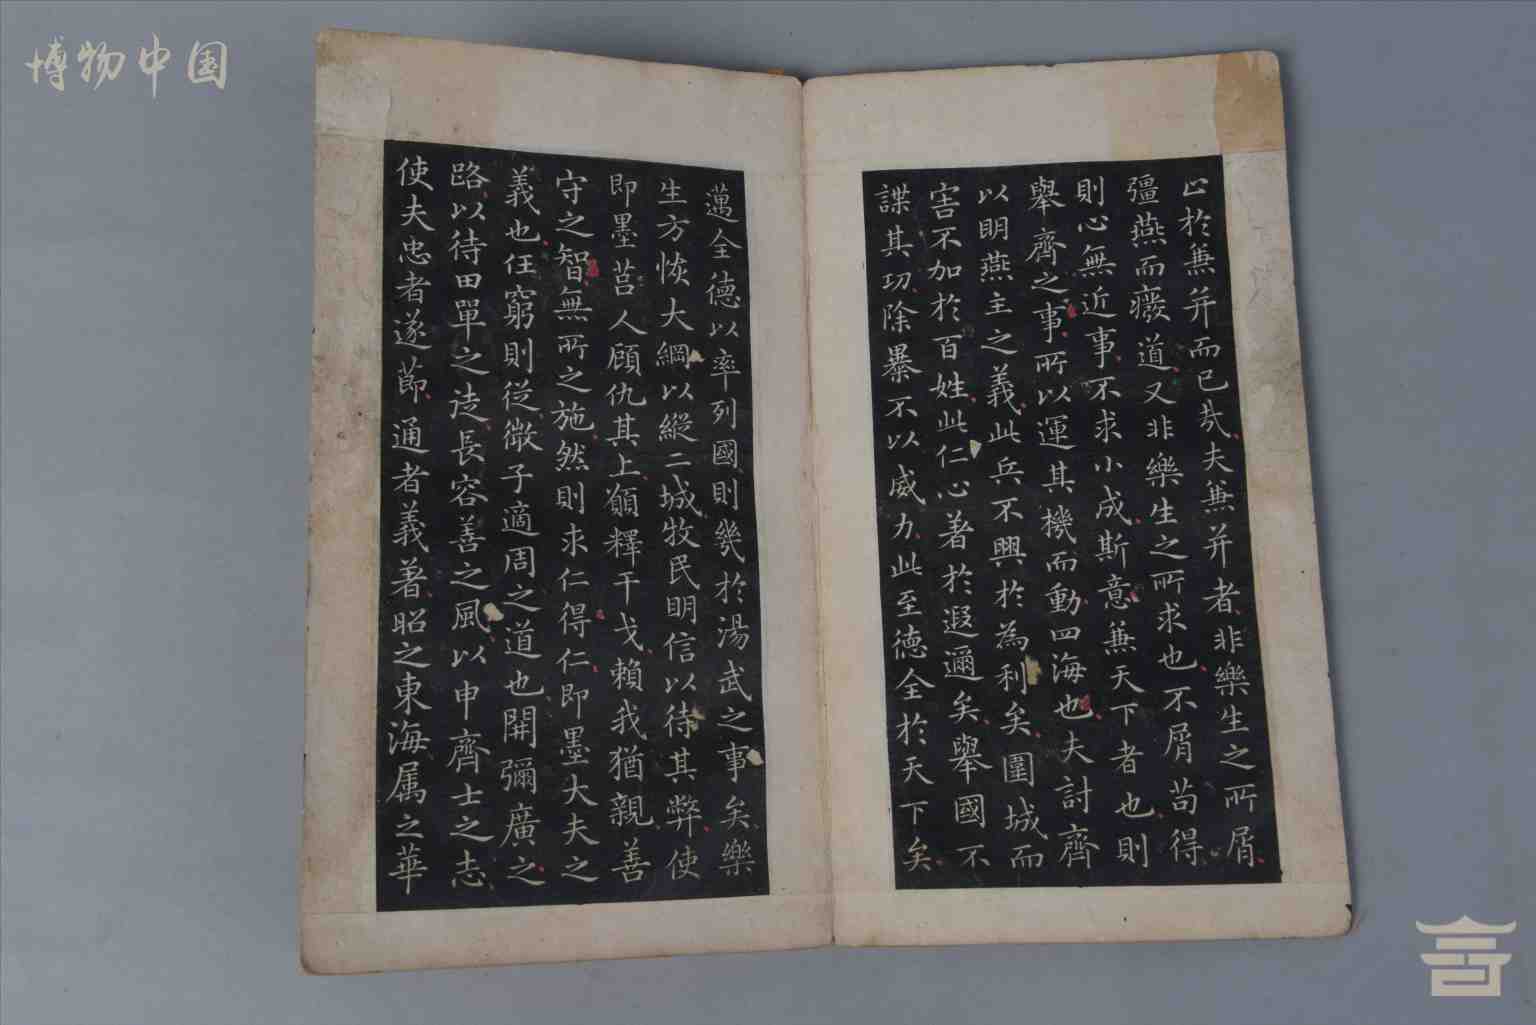 博物中国
止於兼并而已哉夫兼并者非樂生之所屑
彊燕而癈道又非樂生之所求也不屑苟得
則心無近事不求小成斯意兼天下者也則
舉齊之事所以運其機而動四海也夫討齊
以明燕主之義此兵不興於為利矣圍城而
害不加於百姓此仁心著於遐邇矣舉國不
謀其功除暴不以威力此至德全於天下矣
邁全德以率列國則幾於湯武之事矣樂
生方恢大綱以縱二城牧民明信以待其弊使
即墨莒人顧仇其上願釋干戈賴我猶親善
守之智無所之施然則求仁得仁即墨大夫之
義也任窮則從微子適周之道也開彌廣之
路以待田單之徒長容善之風以申齊士之志
使夫忠者遂莭通者義著昭之東海属之華